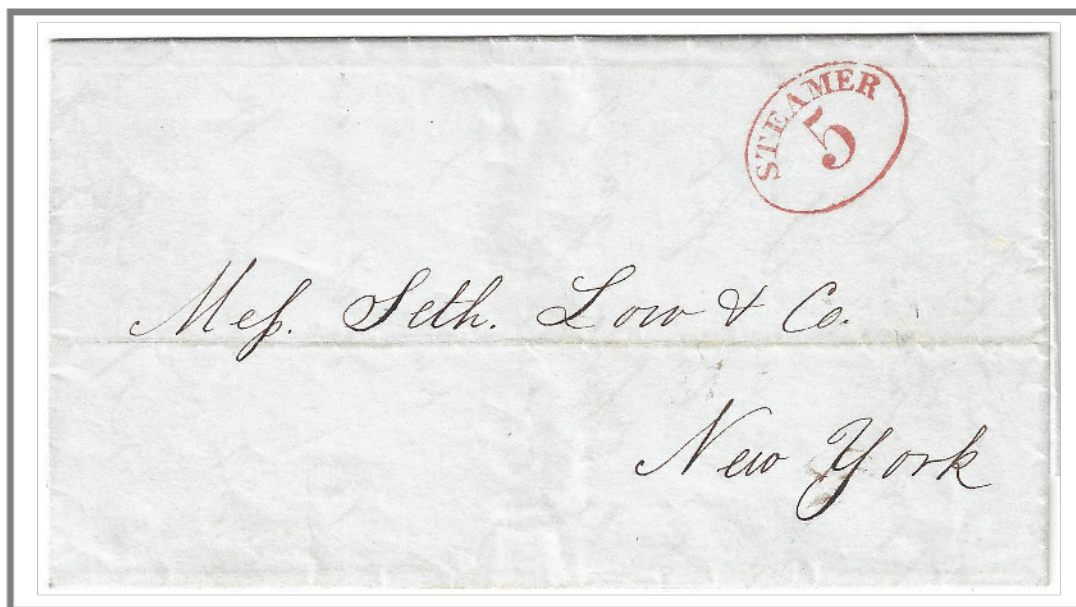 STEAMER
5
Mess. Seth. Low & Co.
New York